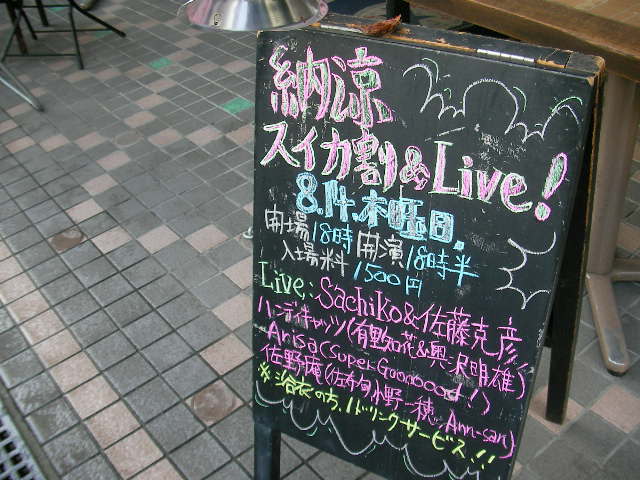 納涼
スイカ割&Live!
8.14.木曜日.
開場18時 開演18時半
入場料 1500円
Live: Sachiko&佐藤克彦
ハンディキャッツ(有里知花&奥沢明雄)
Arisa(Super Goooood!)
佐野庵(佐希旬小野一穂、Ann-san)
※浴衣の方、1ドリンクサービス!!